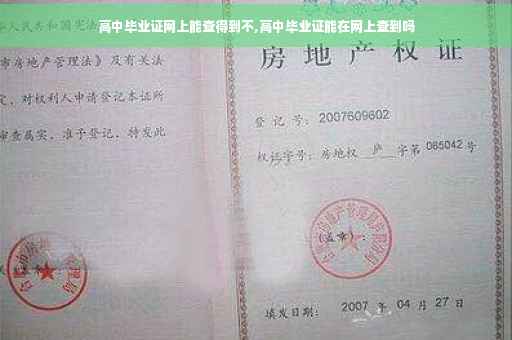 高中毕业证网上能查得到不,高中毕业证能在网上查到吗
人民共和国宪法
市房地产管理法》及有关法
定,对权利人申请登记本证所
审查属实,准予登记,特发此
房地产权证
登记号:2007609602
权证字号:房地权 庐 字第 065042 号
房地产管理局
(盖章):
填发日期:2007 年 04 月 27 日